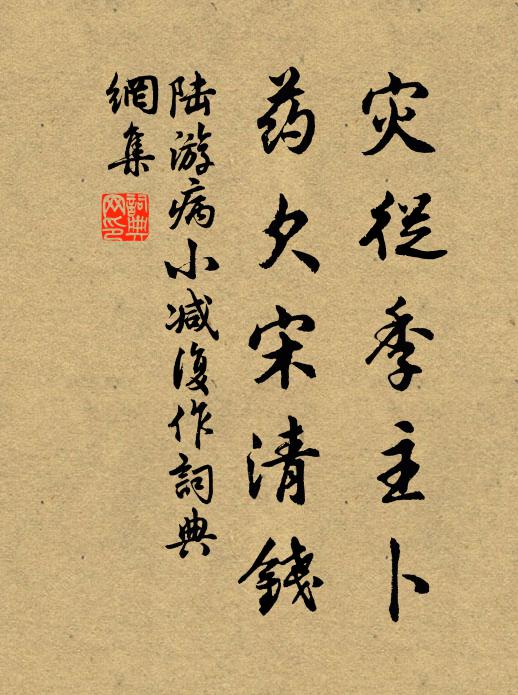 灾從季主卜
药欠宋清錢
陆游病小减復作詞典
網集
詞典网印